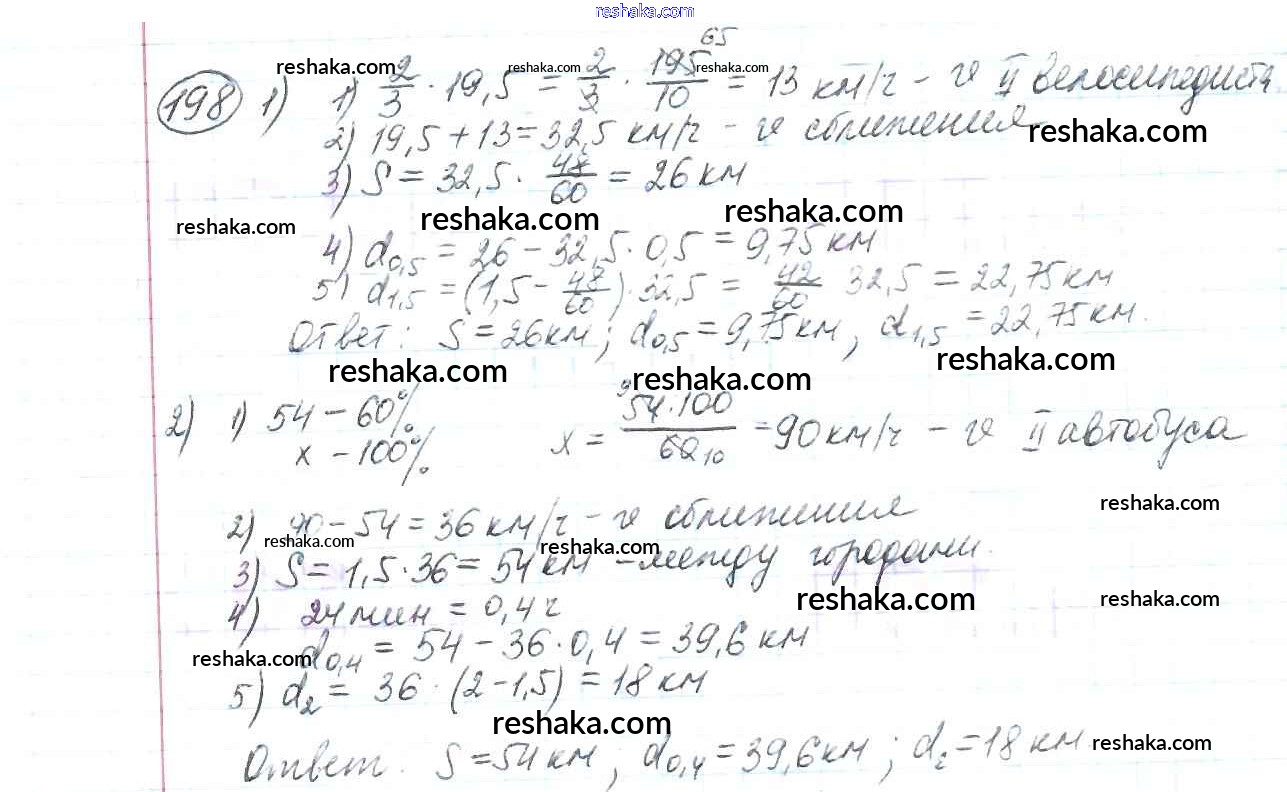 reshaka.com
198 1) 1) 2/3 · 19,5 = 2/3 · 195/10 = 13 км/ч - v II велосипедиста
65
reshaka.com reshaka.com reshaka.com
2) 19,5 + 13 = 32,5 км/ч - v сближения
reshaka.com
3) S = 32,5 · 48/60 = 26 км
reshaka.com reshaka.com reshaka.com
4) d0,5 = 26 - 32,5 · 0,5 = 9,75 км
5) d1,5 = (1,5 - 48/60) · 32,5 = 42/60 32,5 = 22,75 км
Ответ: S = 26 км; d0,5 = 9,75 км, d1,5 = 22,75 км.
reshaka.com reshaka.com reshaka.com
2) 1) 54 - 60%
x - 100%
x = 54·100/60 = 90 км/ч - v II автобуса
9
10
reshaka.com
2) 90 - 54 = 36 км/ч - v сближения
reshaka.com reshaka.com
3) S = 1,5 · 36 = 54 км - между городами.
reshaka.com reshaka.com
4) 24 мин = 0,4 ч
d0,4 = 54 - 36 · 0,4 = 39,6 км
reshaka.com
5) d2 = 36 · (2 - 1,5) = 18 км
reshaka.com
Ответ. S = 54 км, d0,4 = 39,6 км; d2 = 18 км
reshaka.com